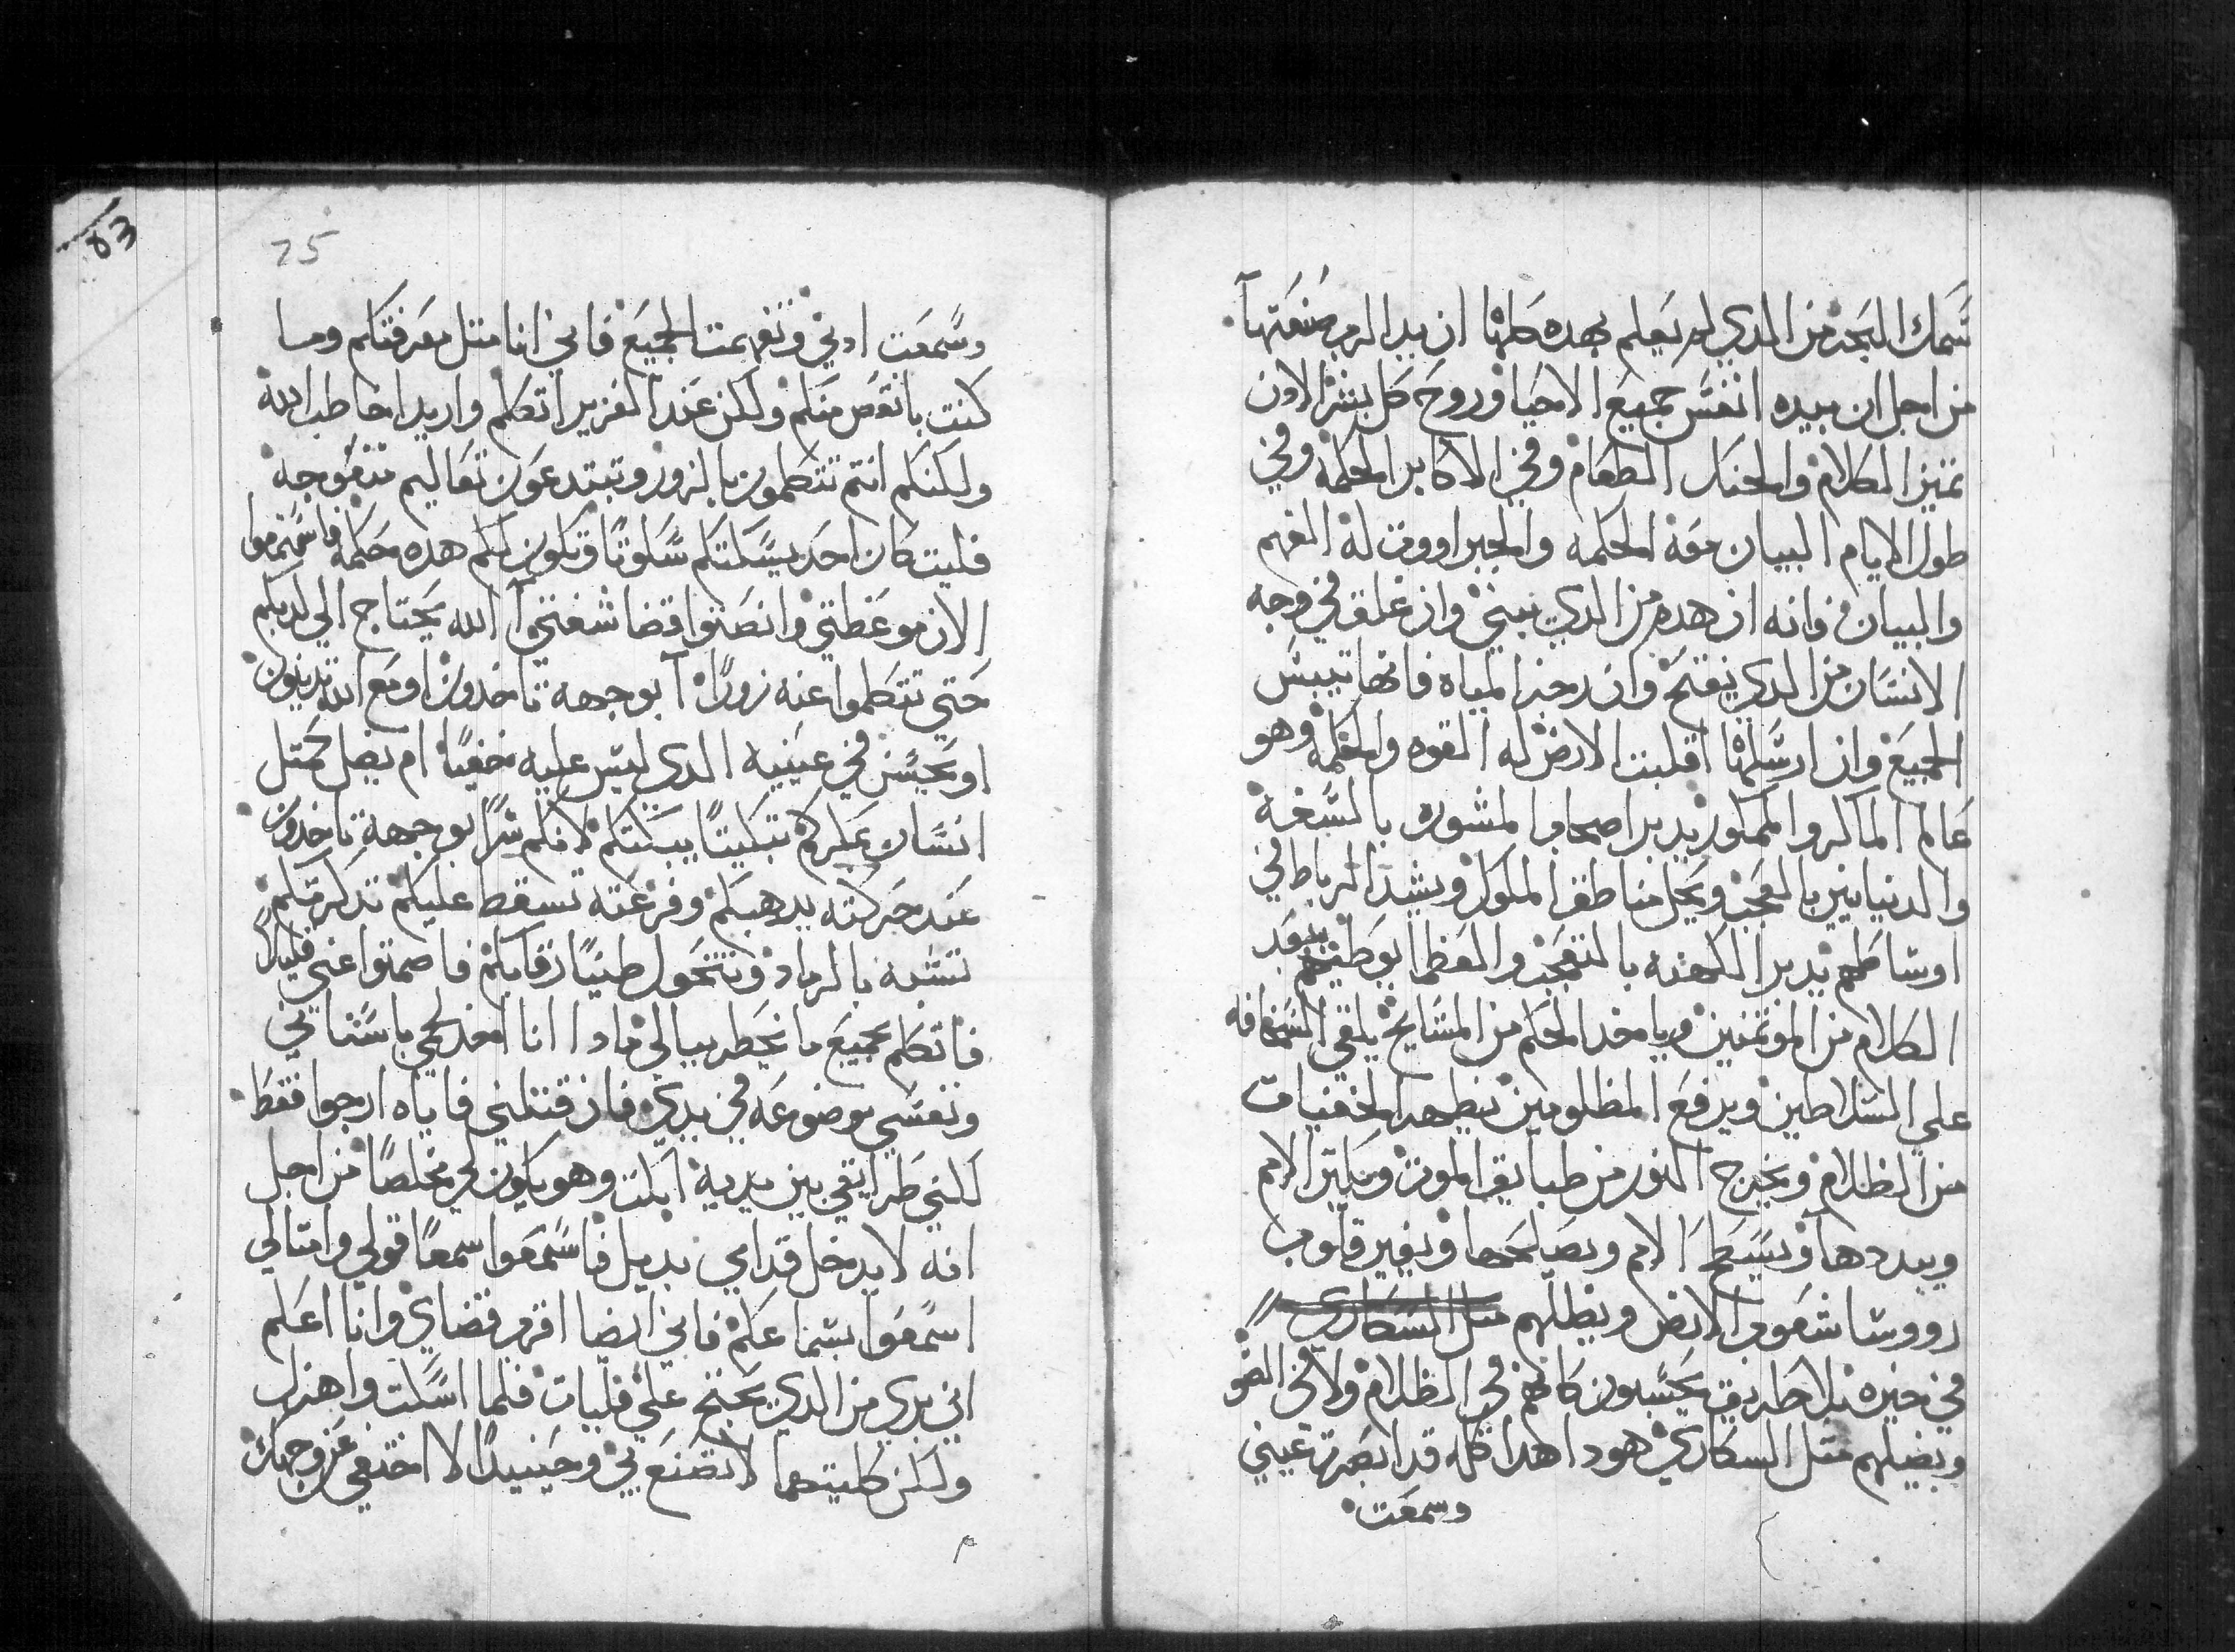 سمك البحر من الدي لم يعلم بهده كلها ان يد الرب صنعتها
من اجل ان بيده انفس جميع الاحيا وروح كل بشر الادن
تميز الكلام والحنك الطعام وفي الاكابر الحكمه وفي
طول الايام البيان معه الحكمه والجبراووت له الفهم
والبيان وانه ان هدم من الدي يبني وان غلق في وجه
الانسان من الدي يفتح وان زجر المياه فانها تيبس
الجميع وان ارسلها اقلبت الارض له القوه والحكمه وهو
عالم الماكر والممكور يدبر اصحاب المشوره بالسفه
والديانين بالعجب ويحل مناطق الملوك ويشد الرباط في
اوساطهم يدبر الكهنه بالتعجب والعظما يوطيهم يبعد
الكلام من الموتمنين وياخد الحكم من المشايخ يلقي السخافه
علي السلاطين ويرفع المظلومين يظهر الخفيات
من الظلام ويخرج النور من طبايق الموت ويكتر الامم
ويبددها ويسطح الامم ويصالحها ويغير قلوب
رووسا شعوب الارض ويظلهم متل السكاري
في حيره بلا طريق يحسبون كانهم في الظلام ولا في الضو
ويضلهم متل السكاري هودا هدا كله قد ابصرته عيني
وسمعت
25
83
وسمعت ادني وتفهمت الجميع فاني انا متل معرفتكم وما
كنت بانقص منكم ولكن عند العزيز اتكلم واريد اخاطب الله
ولكنكم انتم تتكلمون بالزور وتبتدعون تعاليم متعوجه
فليت كان احد يسكتكم سكوتا وتكون لكم هده حكمه فاسمعوا
الان موعظتي وانصتوا قضا شفتي آ الله يحتاج الي كدبكم
حتي تتكلموا عنه زورا آ بوجهه تاخدون او مع الله تدينون
او يحسن في عينيه الدي ليس عليه مخفيا ام يضل كمتل
انسان مكركم تبكيتا يبكتكم لانكم سرا بوجهه تاخدون
عند حركته يدهبكم وفزعته تسقط عليكم تدكرتكم
تتشبه بالرماد وتتحول طينا رقابكم فاصمتوا عني قليلا
فاتكلم بجميع ما يخطر ببالي مادا انا اخد لحمي باسناني
ونفسي موضوعه في يدي فان قتلني فاياه ارجوا فقط
لكني طرايقي بين يديه ابكت وهو يكون لي مخلصا من اجل
انه لا يدخل قدامي بديل فاسمعوا سمعا قولي وامتالي
اسمعوا بسماعكم فاني ايضا اقرب قضاي وانا اعلم
اني بري من الدي يحتج علي فليات فلما اسكت واهزل
ولكن كليتهما لا تصنع بي وحينيدا لا اختفي عن وجهك